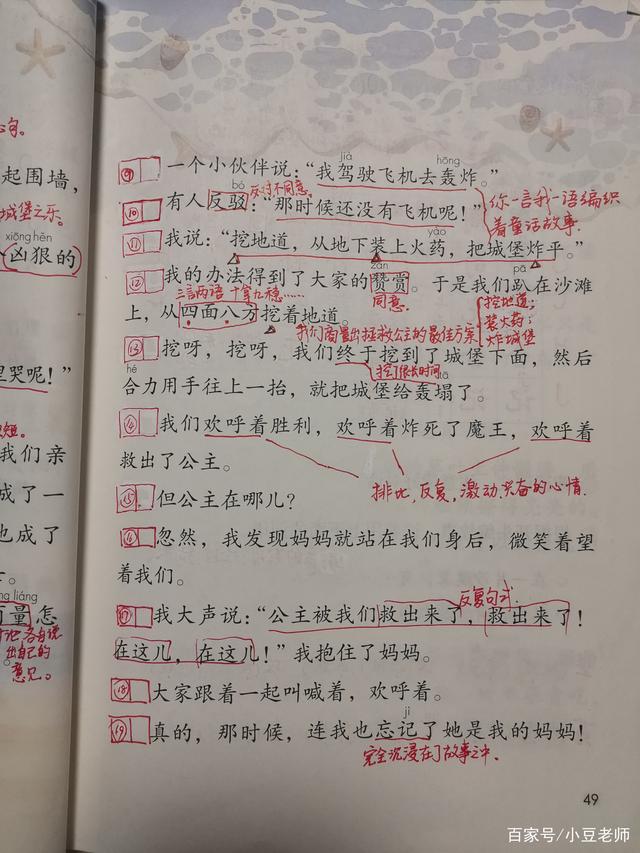 起围墙，
城堡之乐。
xiōng hěn
凶狠的
里哭呢！”
我们亲
成了一
也成了
ng liáng
商量怎
各自说
出自己的
意见。
jià hōng
⑨ 一个小伙伴说：“我驾驶飞机去轰炸。”
bó 反对不同意。
⑩ 有人反驳：“那时候还没有飞机呢！”
你一言我一语编织
着童话故事.
yào
⑪ 我说：“挖地道，从地下装上火药，把城堡炸平。”
zàn pā
⑫ 我的办法得到了大家的赞赏。于是我们趴在沙滩
三言两语 十拿九稳…… 同意.
上，从四面八方挖着地道。
挖地道；
装火药；
炸城堡
我们商量出拯救公主的最佳方案
⑬ 挖呀，挖呀，我们终于挖到了城堡下面，然后
hé 挖了很长时间
合力用手往上一抬，就把城堡给轰塌了。
④ 我们欢呼着胜利，欢呼着炸死了魔王，欢呼着
救出了公主。
排比，反复，激动兴奋的心情.
⑮ 但公主在哪儿？
忽然，我发现妈妈就站在我们身后，微笑着望
着我们。
反复句式.
⑰ 我大声说：“公主被我们救出来了，救出来了！
在这儿，在这儿！”我抱住了妈妈。
⑱ 大家跟着一起叫喊着，欢呼着。
jì
⑲ 真的，那时候，连我也忘记了她是我的妈妈！
完全沉浸在了故事之中.
49
百家号/小豆老师